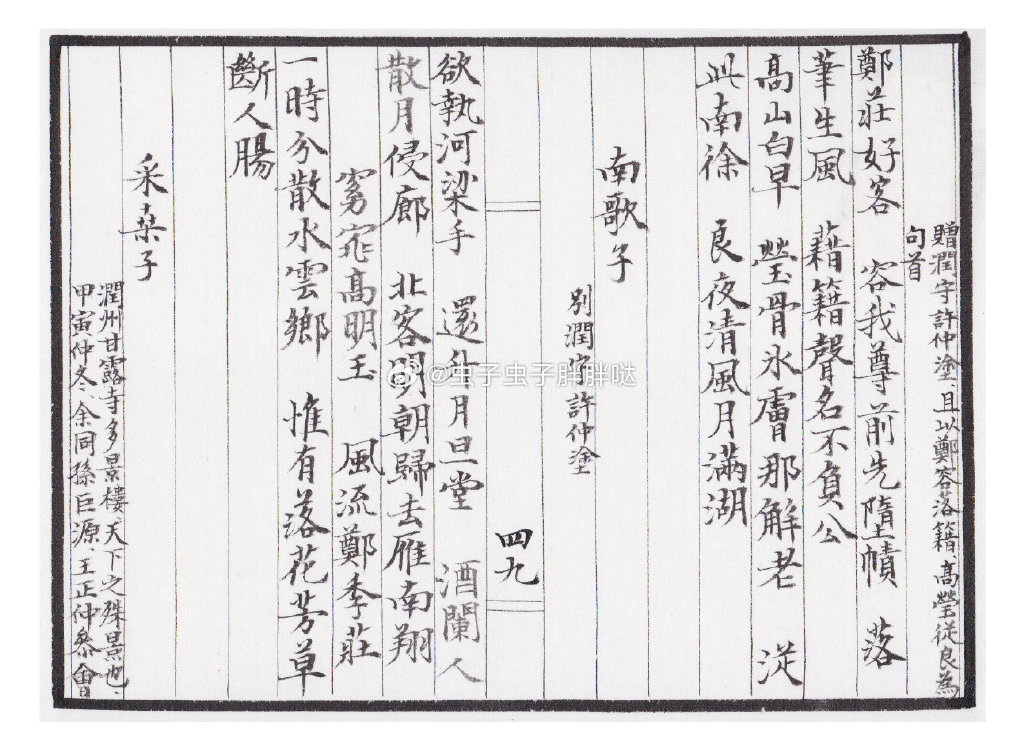 贈潤守許仲塗、且以鄭容落籍、高瑩從良為
句首
鄭莊好客　容我尊前先墮幘　落
筆生風　藉籍聲名不負公
高山白早　瑩骨冰膚那解老　從
此南徐　良夜清風月滿湖
南歌子
別潤守許仲塗
四九
欲執河梁手　還升月旦堂　酒闌人
散月侵廊　北客明朝歸去雁南翔
窈窕高明玉　風流鄭季莊
一時分散水雲鄉　惟有落花芳草
斷人腸
采桑子
潤州甘露寺多景樓、天下之殊景也、
甲寅仲冬、余同孫巨源、王正仲參會
@虫子虫子胖胖哒